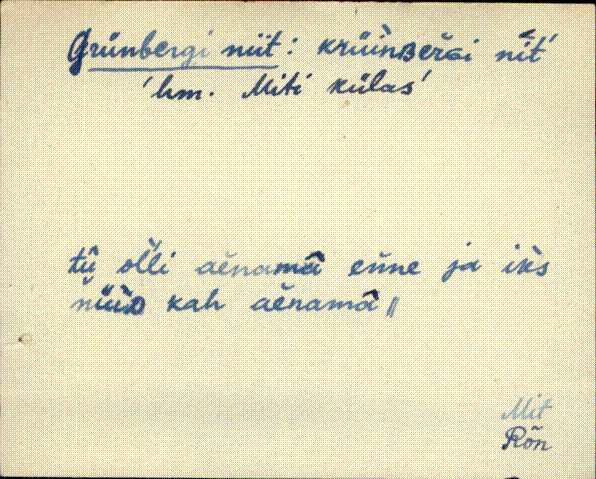 Grünbergi niit: krüìnʙerɢi nit'
'hm. Miti külas'
tü̬ olli aenamâ enne ja iks
nüüᴅ kah aenamâ ||
Mit
Rõn